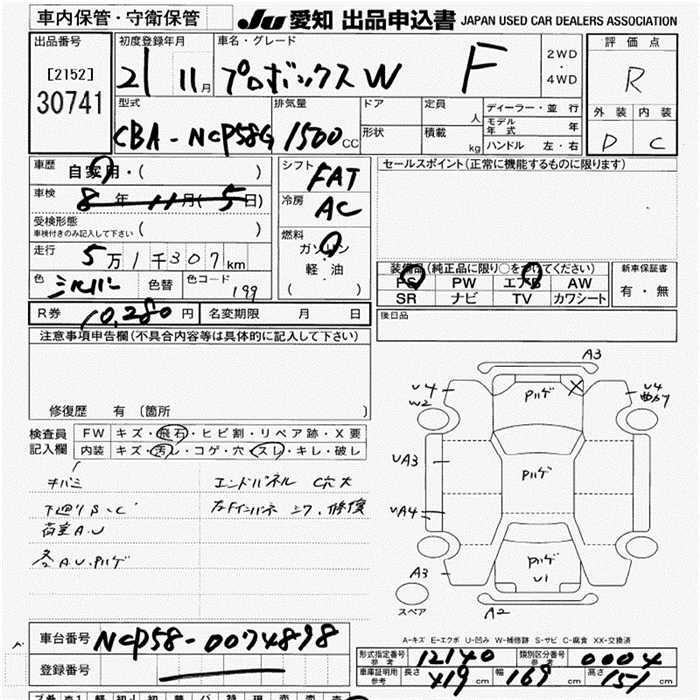 車内保管・守衛保管 JU 愛知 出品申込書 JAPAN USED CAR DEALERS ASSOCIATION
出品番号 初度登録年月 車名・グレード 評価点
[2152] 21 11月 プロボックスW F 2WD・4WD R
30741
型式 排気量 ドア 定員 人 ディーラー・並行 外装 内装
CBA-NCP58G 1500cc 形状 積載 kg モデル年式 年 D C
ハンドル 左・右
車歴 自家用・( ) シフト FAT セールスポイント(正常に機能するものに限ります)
車検 8年11月(5日) 冷房 AC
受検形態 車検付きのみ記入して下さい ( )
燃料 ガソリン 軽・油 ( )
走行 5万1千307km 装備品(純正品に限り○をつけてください) 新車保証書
PS PW エアB AW 有・無
色 シルバー 色替 色コード 199 SR ナビ TV カワシート
R券 10,280円 名変期限 月 日 後日品
注意事項申告欄(不具合内容等は具体的に記入して下さい)
修復歴 有(箇所 )
検査員記入欄 FW キズ・飛石・ヒビ割・リペア跡・X要
内装 キズ・汚レ・コゲ・穴・スレ・キレ・破レ
キバミ エンドパネル C穴大
下廻りS、C
荷室A.U
各A.U.Pハゲ
A3
U4 W2 Pハゲ X U4
UA3 Pハゲ
UA4
A3 Pハゲ U1
スペア A2
A-キズ E-エクボ U-凹み W-補修跡 S-サビ C-腐食 XX-交換済
車台番号 NCP58-0074898
型式指定番号 参考 12140 類別区分番号 参考 0004
登録番号 車庫証明用 参考 長さ 419cm 幅 169cm 高さ 151cm